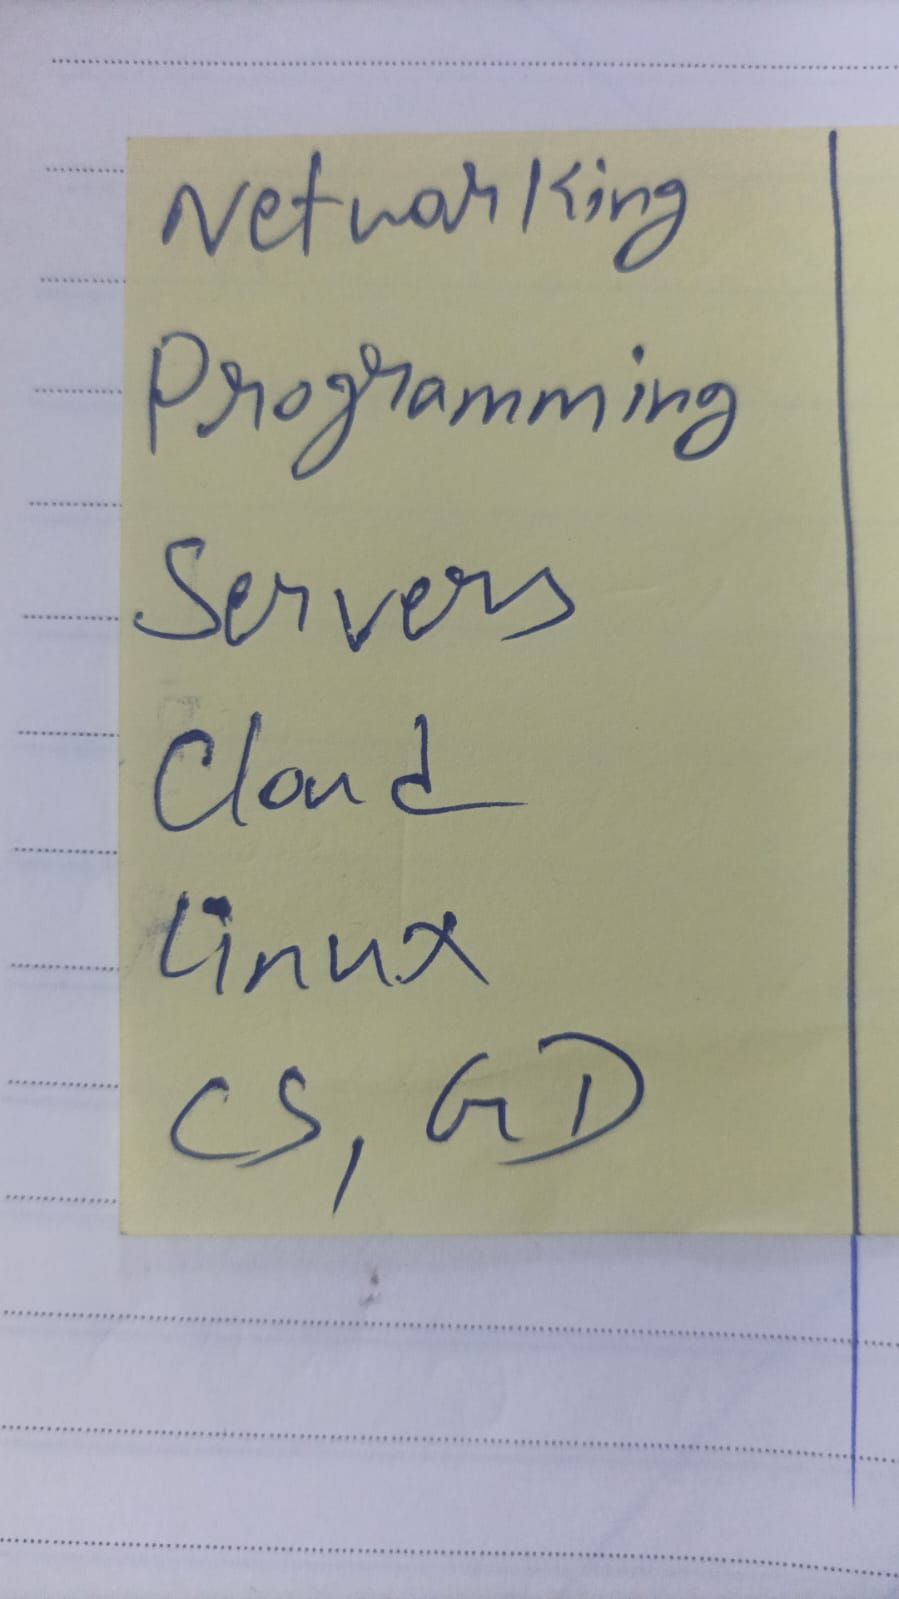 Networking
Programming
Servers
Cloud
Linux
CS, GD